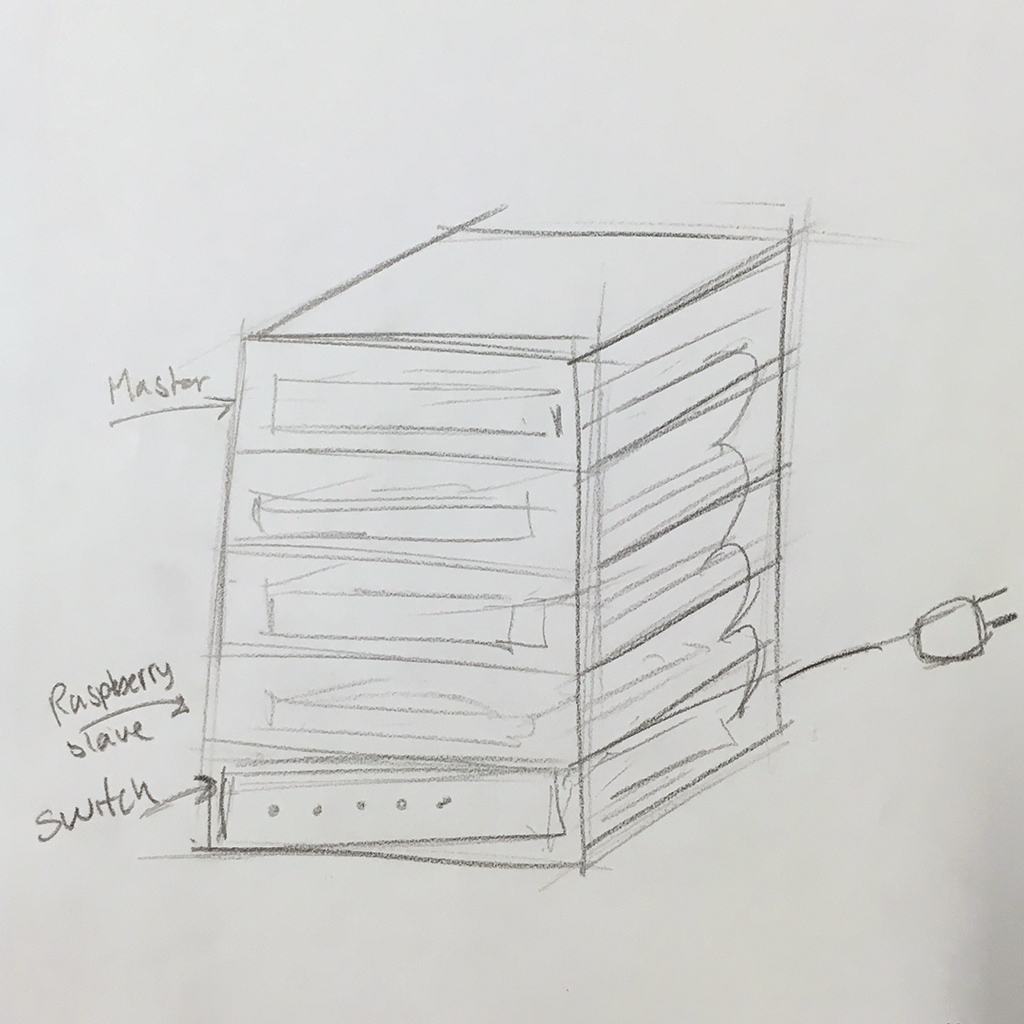 Master
Raspberry
slave
Switch